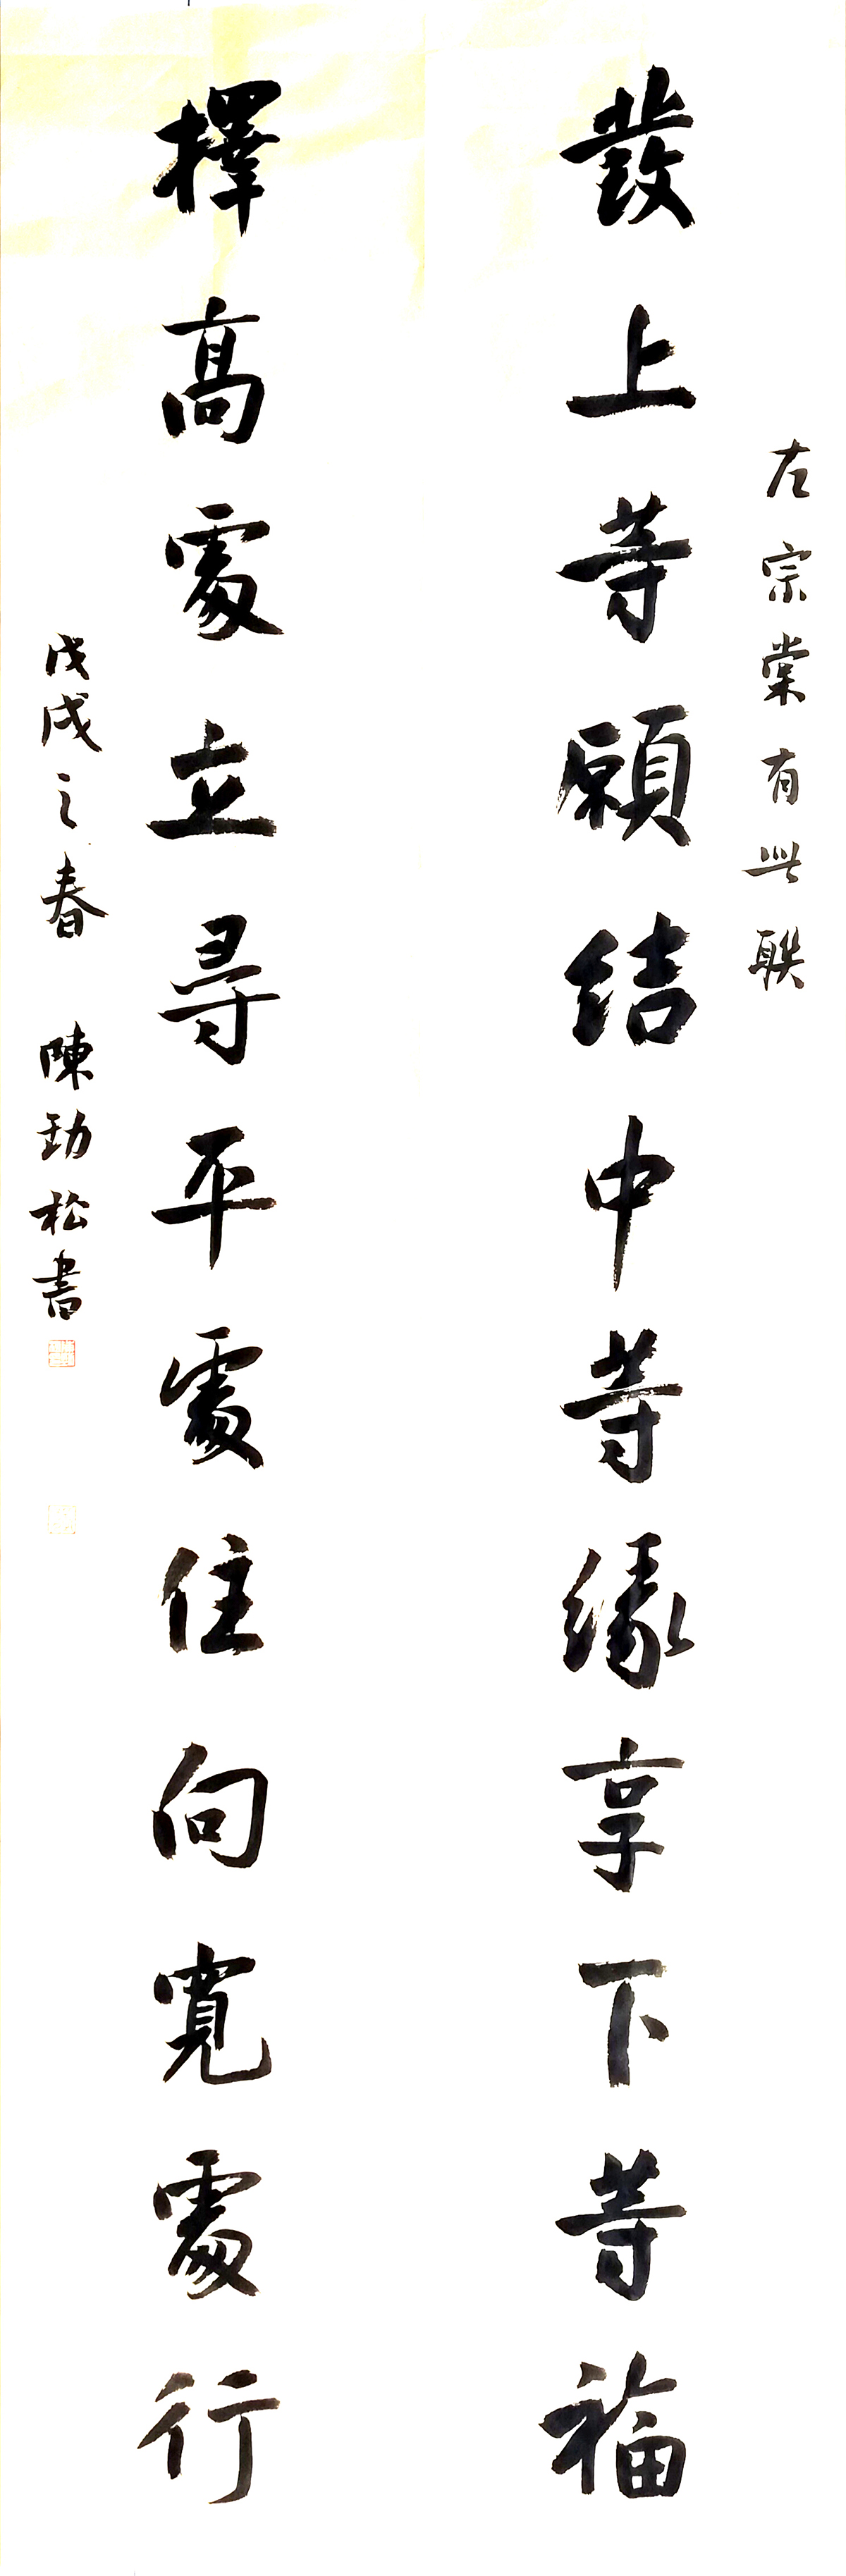 左宗棠有此联
發上等願結中等緣享下等福
擇高處立尋平處住向寬處行
戊戌之春 陳勁松書